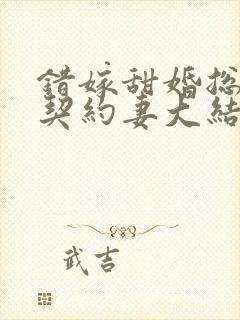 錯嫁甜婚总
契約妻大結
武吉